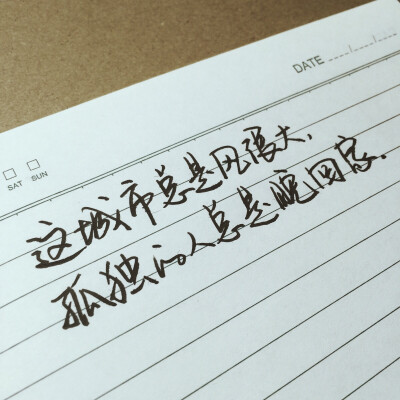 DATE
SAT SUN
这城市总是风很大.
孤独的人总是晚回家.